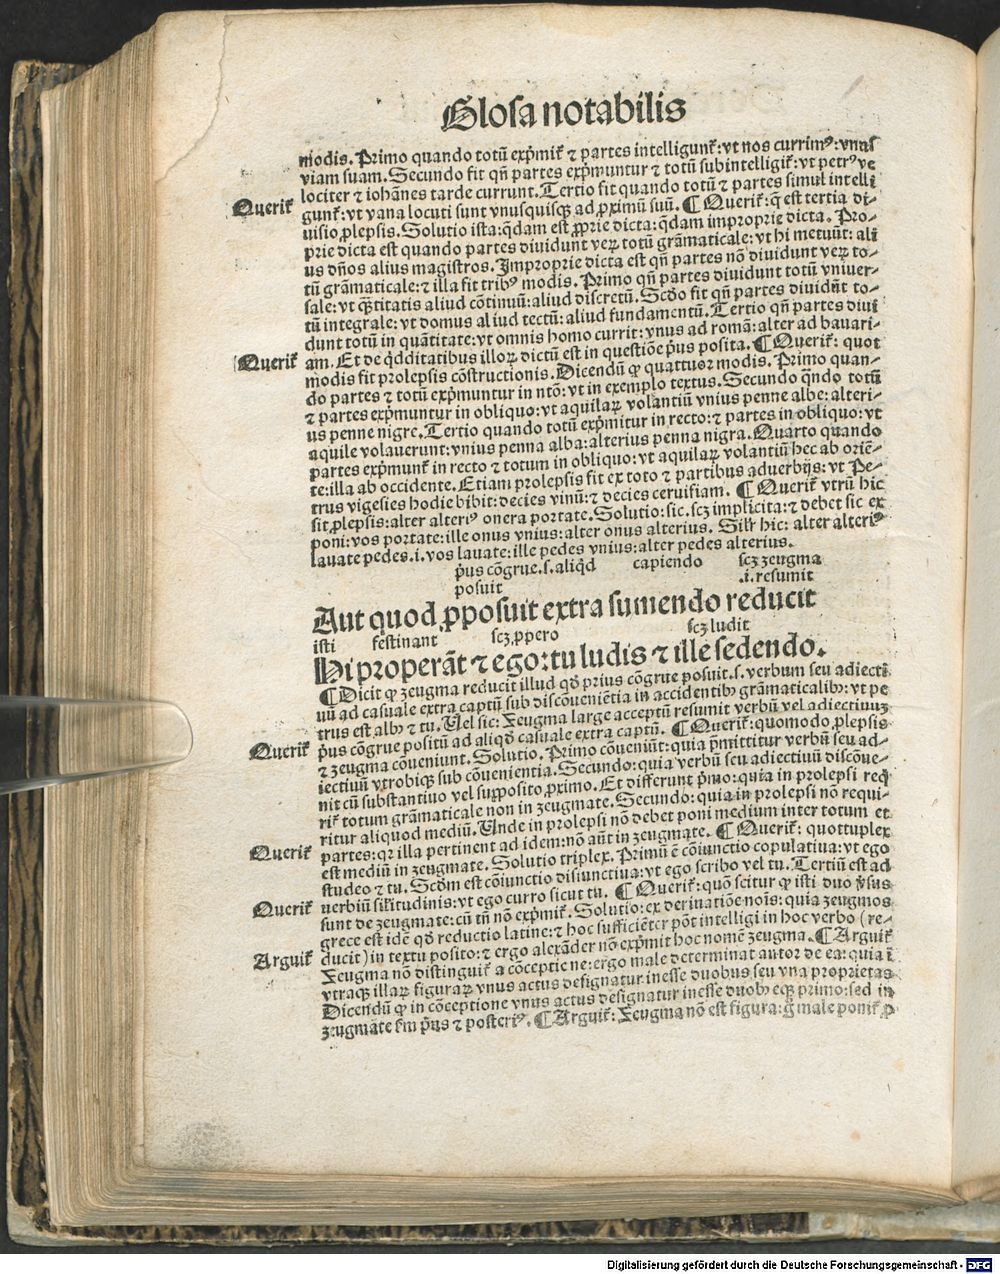 Glosa notabilis
modis. Primo quando totū exp̄mit̄ ⁊ partes intelligunt̄: vt nos currimꝰ: vnus
viam suam. Secundo fit qn̄ partes exp̄muntur ⁊ totū subintelligit̄: vt petrꝰ ve
lociter ⁊ iohānes tarde currunt. Tertio fit quando totū ⁊ partes simul intelli
Querit̄
gunt̄: vt vana locuti sunt vnusquisqꝫ ad ꝓximū suū. ¶ Querit̄: q̄ est tertia di-
uisio ꝓlepsis. Solutio ista: q̄dam est ꝓprie dicta: q̄dam improprie dicta. Pro-
prie dicta est quando partes diuidunt veꝝ totū grāmaticale: vt hi metuūt: ali
us dn̄os alius magistros. Improprie dicta est qn̄ partes nō diuidunt veꝝ to-
tū grāmaticale: ⁊ illa fit tribꝰ modis. Primo qn̄ partes diuidunt totū vniuer-
sale: vt q̄titatis aliud cōtinuū: aliud discretū. Scd̄o fit qn̄ partes diuidūt to-
tū integrale: vt domus aliud tectū: aliud fundamentū. Tertio qn̄ partes diui
dunt totū in quātitate: vt omnis homo currit: vnus ad romā: alter ad bauari-
Querit̄
am. Et de q̇dditatibus illoꝝ dictū est in questiōe p̄us posita. ¶ Querit̄: quot
modis fit prolepsis cōstructionis. Dicendū ꝙ quattuor modis. Primo quan-
do partes ⁊ totū exp̄muntur in ntō: vt in exemplo textus. Secundo q̄ndo totū
⁊ partes exp̄muntur in obliquo: vt aquilaꝝ volantiū vnius penne albe: alteri-
us penne nigre. Tertio quando totū exp̄mitur in recto: ⁊ partes in obliquo: vt
aquile volauerunt: vnius penna alba: alterius penna nigra. Quarto quando
partes exp̄munt̄ in recto ⁊ totum in obliquo: vt aquilaꝝ volantiū hec ab oriē-
te: illa ab occidente. Etiam prolepsis fit ex toto ⁊ partibus aduerbijs: vt Pe-
trus vigesies hodie bibit: decies vinū: ⁊ decies ceruisiam. ¶ Querit̄ vtrū hic
sit ꝓlepsis: alter alteriꝰ onera portate. Solutio: sic. scꝫ implicita: ⁊ debet sic ex
poni: vos portate: ille onus vnius: alter onus alterius. Silr̄ hic: alter alteriꝰ
lauate pedes .i. vos lauate: ille pedes vnius: alter pedes alterius.
p̄us cōgrue .s. aliq̇d capiendo scꝫ zeugma
posuit .i. resumit
Aut quod ꝓposuit extra sumendo reducit
isti festinant scꝫ ꝓpero scꝫ ludit
Hi properāt ⁊ ego: tu ludis ⁊ ille sedendo.
¶ Dicit ꝙ zeugma reducit illud qd̄ prius cōgrue posuit .s. verbum seu adiecti
uū ad casuale extra captū sub discōueniētia in accidentibꝫ grāmaticalibꝫ: vt pe
trus est albꝫ ⁊ tu. Vel sic: Zeugma large acceptū resumit verbū vel adiectiuuꝫ
Querit̄
p̄us cōgrue positū ad aliqd̄ casuale extra captū. ¶ Querit̄: quomodo ꝓlepsis
⁊ zeugma cōueniunt. Solutio. Primo cōueniūt: quia p̄mittitur verbū seu ad-
iectiuū vtrobiqꝫ sub cōuenientia. Secundo: quia verbū seu adiectiuū discōue-
nit cū substantiuo vel supposito ꝓximo. Et differunt p̄mo: quia in prolepsi req̇
rit̄ totum grāmaticale non in zeugmate. Secundo: quia in prolepsi nō requi-
ritur aliquod mediū. Unde in prolepsi nō debet poni medium inter totum et
Querit̄
partes: qꝛ illa pertinent ad idem: nō aūt in zeugmate. ¶ Querit̄: quottuplex
est mediū in zeugmate. Solutio triplex. Primū ē cōiunctio copulatiua: vt ego
studeo ⁊ tu. Scdm̄ est cōiunctio disiunctiua: vt ego scribo vel tu. Tertiū est ad
Querit̄
uerbiū sil̄itudinis: vt ego curro sicut tu. ¶ Querit̄: quō scitur ꝙ isti duo v̄sus
sunt de zeugmate: cū tn̄ nō exp̄mit̄. Solutio: ex deriuatiōe nois: quia zeugmos
grece est idē qd̄ reductio latine: ⁊ hoc sufficiēter pōt intelligi in hoc verbo (re-
Arguit̄
ducit) in textu posito: ⁊ ergo alexāder nō exp̄mit hoc nomē zeugma. ¶ Arguit̄
Zeugma nō distinguit̄ a cōceptione: ergo male determinat autor de ea: quia ī
vtraqꝫ illaꝝ figuraꝝ vnus actus designatur inesse duobus seu vna proprietas
Dicendū ꝙ in cōceptione vnus actus designatur inesse duobꝫ eq̄ primo: sed in
zeugmate fm̄ p̄us ⁊ posteriꝰ. ¶ Arguit̄: Zeugma nō est figura: g̊ male ponit̄ ꝓ
Digitalisierung gefördert durch die Deutsche Forschungsgemeinschaft - DFG